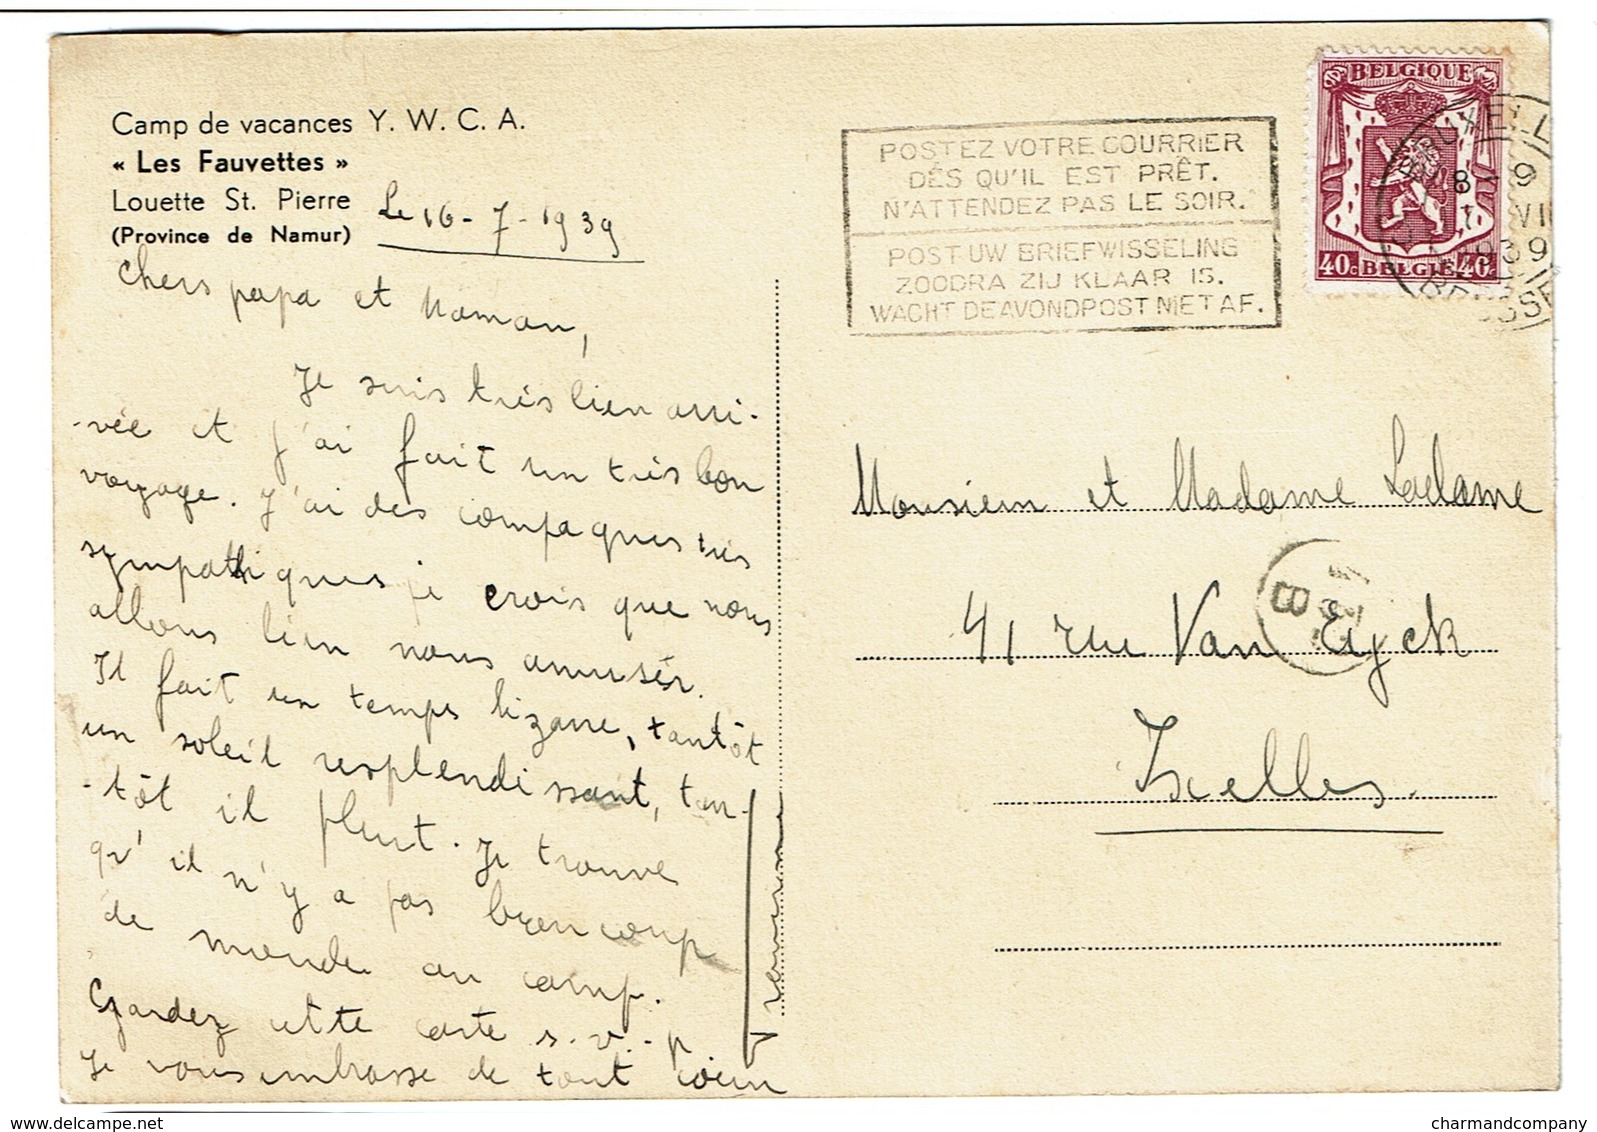 Camp de vacances Y. W. C. A.
« Les Fauvettes »
Louette St. Pierre
(Province de Namur)
Le 16-7-1939
Chers papa et Maman,
Je suis très bien arri-
-vée et j'ai fait un très bon
voyage. J'ai des compagnes très
sympathiques je crois que nous
allons bien nous amusér.
Il fait un temps bizarre, tantôt
un soleil resplendissant, tan-
-tôt il pleut. Je trouve
qu'il n'y a pas beaucoup
de monde au camp.
Gardez cette carte s.v.p
Je vous embrasse de tout cœur
POSTEZ VOTRE COURRIER
DÈS QU'IL EST PRÊT.
N'ATTENDEZ PAS LE SOIR.
POST UW BRIEFWISSELING
ZOODRA ZIJ KLAAR IS.
WACHT DE AVONDPOST NIET AF.
BELGIQUE
40c BELGIË 40c
BRUXELL
8-9
VII
1939
BRUSSE
Monsieur et Madame Ladame
41 rue Van Eyck
Ixelles.
B
charmandcompany